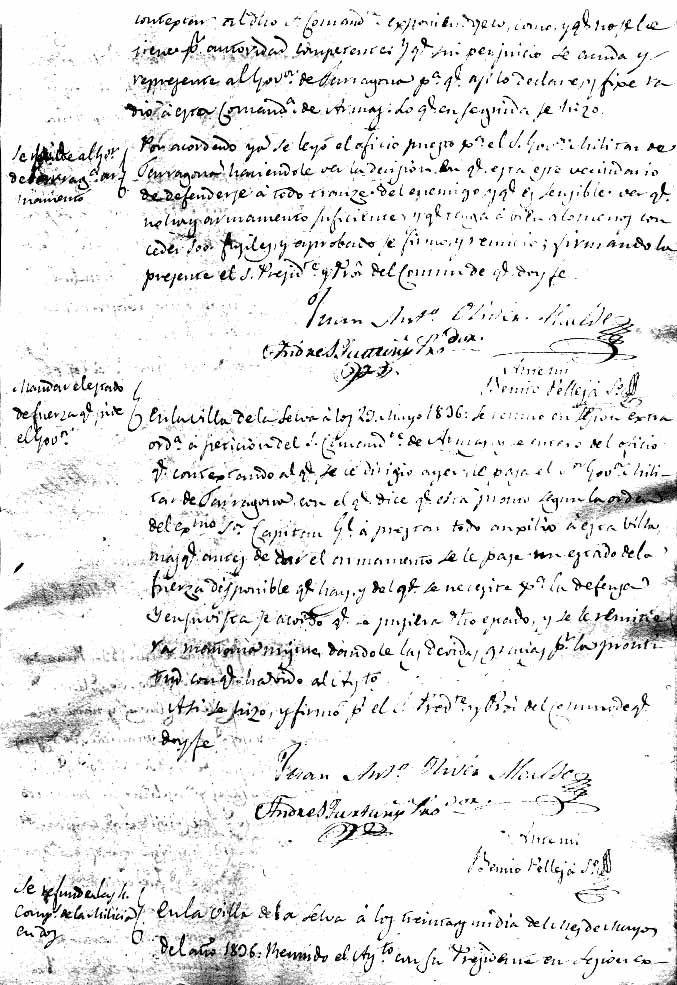 contextar al dho S. Comand.te exponiendole, como, y q.e no se le
tiene p.r autoridad competente; y q.e sin perjuicio se acuda y
represente al Gov.or de Tarragona p.a q.e asi lo declare, y fixe
dio á esta Comand.a de Armas: Lo q.e en seguida se hizo.
Se al Gov.or
de Tarragona
mamento
Por acordado ya se leyó el oficio puesto p.a el S. Gov.or Militar de
Tarragona haciendole ver la decision en q.e esta este vecindario
de defenderse á todo tranze del enemigo y q.e es sensible ver q.e
no hay armamento suficiente, y q.e tenga á bien alomenos con
ceder fusiles, y aprobado se firmo y remitio; firmando la
presente el S. Presid.te y Pror del Comun de q.e doy fe.
Juan Ant.o Olivér Alcalde
Andres Pro dor.
Antemi
Benito Pellejá S.rio
Mandar el estado
de fuerza q.e pide
el Gov.or
En la Villa de la Selva á los 29 Mayo 1836: se reunio en sesion extra
ord.a á peticion del S. Comand.te de Armas, y se entero del oficio
q.e contextando al q.e se le dirigio ayer le pasa el S.or Gov.or Mili
tar de Tarragona con el q.e dice q.e esta pronto segun la orden
del exmo S.or Capitan G.l á prestar todo auxilio á esta villa
mas q.e antes de dar el armamento se le pase un estado de la
fuerza disponible q.e hay, y del q.e se necesite p.a la defensa
Y en su vista se acordó q.e se pusiera dho estado, y se le remitie
ra mañana mismo, dandole las devidas gracias p.r la pronti
tud con q.e ha oido al Ay.to
Asi se hizo, y firmó p.r el S. Presd.te y Pror del Comun de q.e
doy fe
Juan Ant.o Olivér Alcalde
Andres Pro dor.
Antemi
Benito Pellejá S.rio
Se refunden las
Comp.s de la Milicia
en dos
En la Villa de la Selva á los treinta y un dia del mes de Mayo
del año 1836: Reunido el Ay.to con su Presidente en sesion ex-